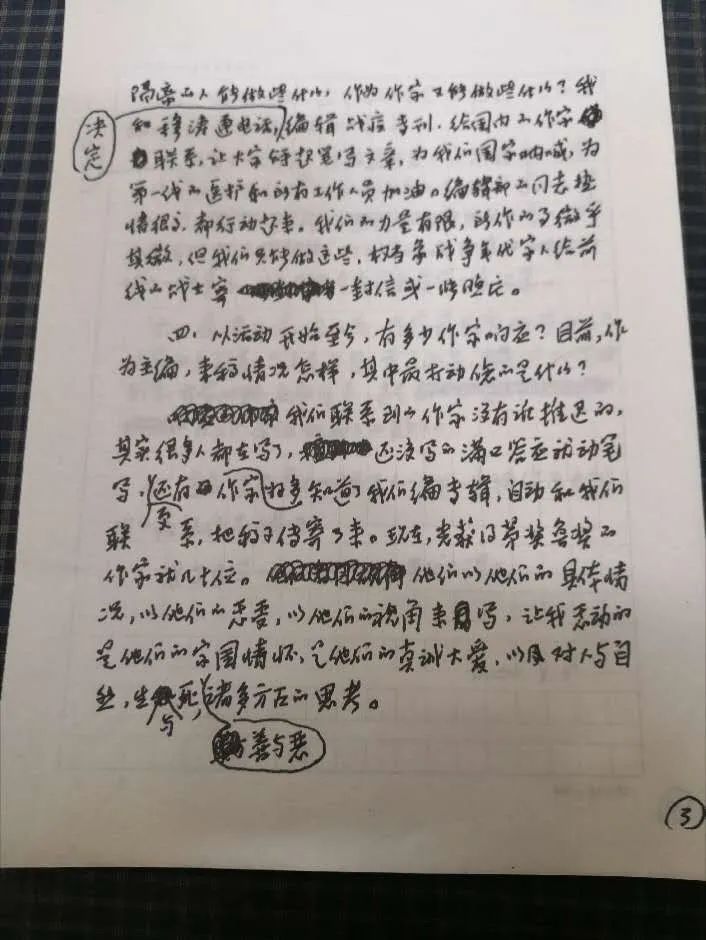 隔离的人能做些什么，作为作家又能做些什么？我
决定
和穆涛通电话，编辑战疫专刊，给国内的作家
联系，让大家拿起笔写文章，为我们国家呐喊，为
第一线的医护和所有工作人员加油。编辑部的同志热
情很高，都行动起来。我们的力量有限，所作的事微乎
其微，但我们只能做这些，权当象战争年代家人给前
线的战士寄一封信或一些吃吃。
四、从活动开始至今，有多少作家响应？目前，作
为主编，来稿情况怎样，其中最打动您的是什么？
我们联系到的作家没有谁推迟的，
其实很多人都在写了，还没写的满口答应就动笔
写，还有的作家知道了我们编专辑，自动和我们
更多
联系，把稿子传寄了来。现在，光获得茅奖鲁奖的
作家就几十位。他们以他们的具体情
况，以他们的感受，以他们的视角来写，让我感动的
是他们的家国情怀，是他们的真诚大爱，以及对人与自
然，生与死，诸多方面的思考。
善与恶
3